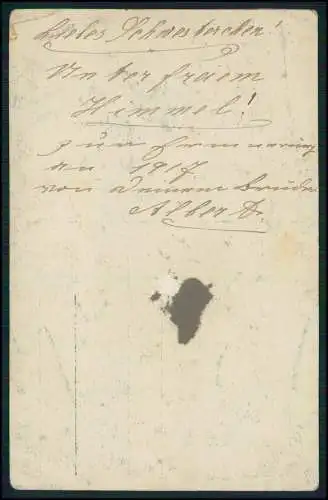 Liebes Schwesterchen!
Unter freiem
Himmel!
zur Erinnerung
an 1917
von Deinem Bruder
Albert